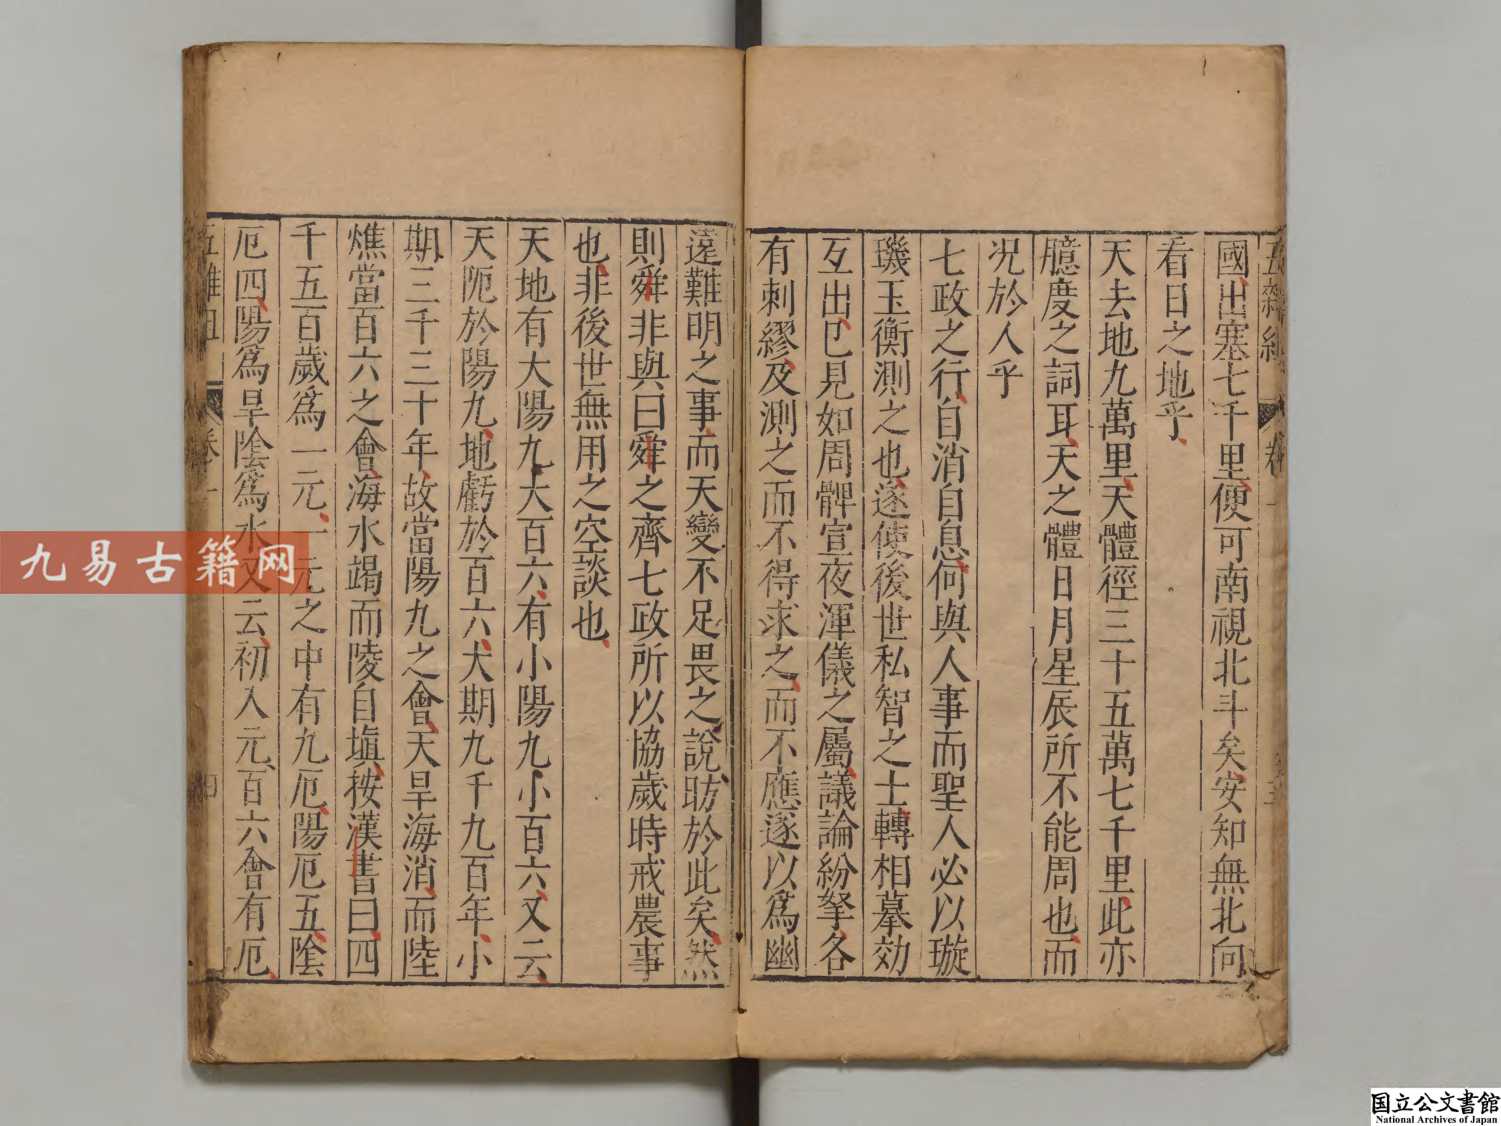 國出塞七千里便可南視北斗矣安知無北向
看日之地乎
天去地九萬里天體徑三十五萬七千里此亦
臆度之詞耳天之體日月星辰所不能周也而
況於人乎
七政之行自消自息何與人事而聖人必以璇
璣玉衡測之也遂使後世私智之士轉相摹効
互出已見如周髀宣夜渾儀之屬議論紛拏各
有刺繆及測之而不得求之而不應遂以爲幽
遠難明之事而天變不足畏之說昉於此矣然
則舜非與曰舜之齊七政所以協歲時戒農事
也非後世無用之空談也
天地有大陽九大百六有小陽九小百六又云
天阨於陽九地虧於百六大期九千九百年小
期三千三十年故當陽九之會天旱海消而陸
燋當百六之會海水竭而陵自塡按漢書曰四
千五百歲爲一元一元之中有九厄陽厄五陰
厄四陽爲旱陰爲水又云初入元百六會有厄
卷一
九易古籍网
国立公文書館
National Archives of Japan